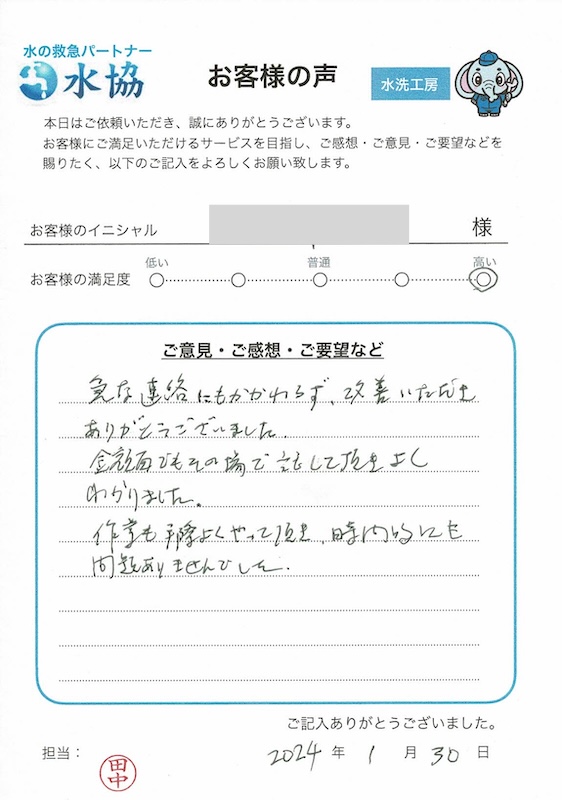 水の救急パートナー
水協
お客様の声
水洗工房
本日はご依頼いただき、誠にありがとうございます。
お客様にご満足いただけるサービスを目指し、ご感想・ご意見・ご要望などを
賜りたく、以下のご記入をよろしくお願い致します。
お客様のイニシャル 様
低い 普通 高い
お客様の満足度
ご意見・ご感想・ご要望など
急な連絡にもかかわらず、改善いただき
ありがとうございました。
金額面でもその場で話して頂きよく
わかりました。
作業も手際よくやって頂き、時間的にも
問題ありませんでした。
ご記入ありがとうございました。
担当： 田中 2024 年 1 月 30 日